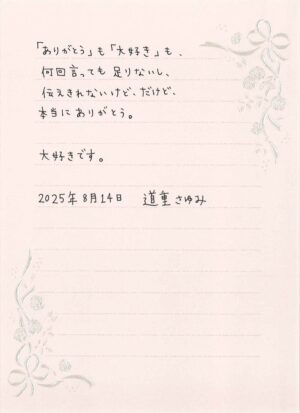 「ありがとう」も「大好き」も、
何回言っても足りないし、
伝えきれないけど、だけど、
本当にありがとう。
大好きです。
2025年8月14日 道重さゆみ